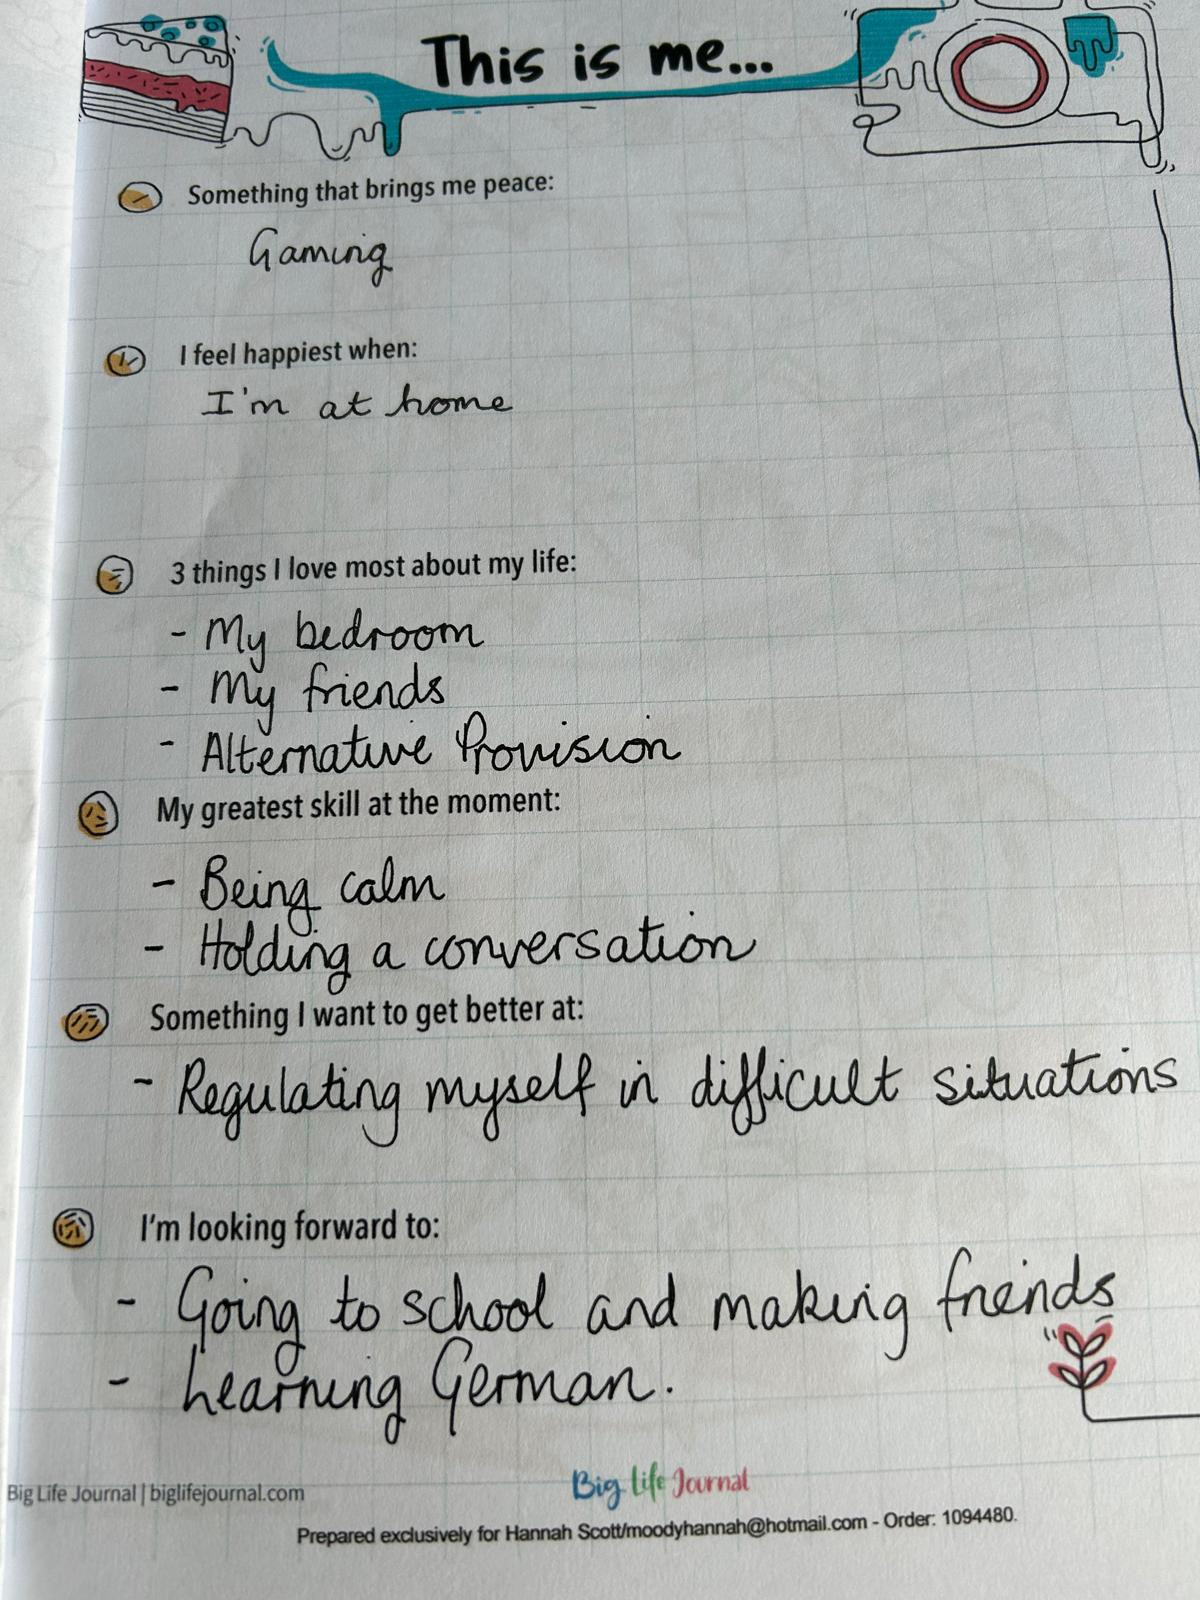 This is me...
Something that brings me peace:
Gaming
I feel happiest when:
I'm at home
3 things I love most about my life:
- My bedroom
- My friends
- Alternative Provision
My greatest skill at the moment:
- Being calm
- Holding a conversation
Something I want to get better at:
- Regulating myself in difficult situations
I'm looking forward to:
- Going to school and making friends
- Learning German.
Big Life Journal
Big Life Journal | biglifejournal.com
Prepared exclusively for Hannah Scott/moodyhannah@hotmail.com - Order: 1094480.